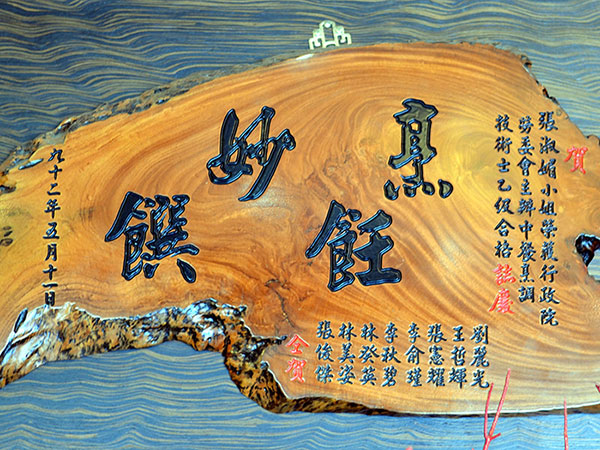 賀
張淑媚小姐榮獲行政院
勞委會主辦中餐烹調
技術士乙級合格誌慶
烹飪妙饌
劉麗光
王哲輝
張憲耀
李俞瑾
李秋碧
林癸英
林美姿
張俊傑
仝賀
九十二年五月十一日